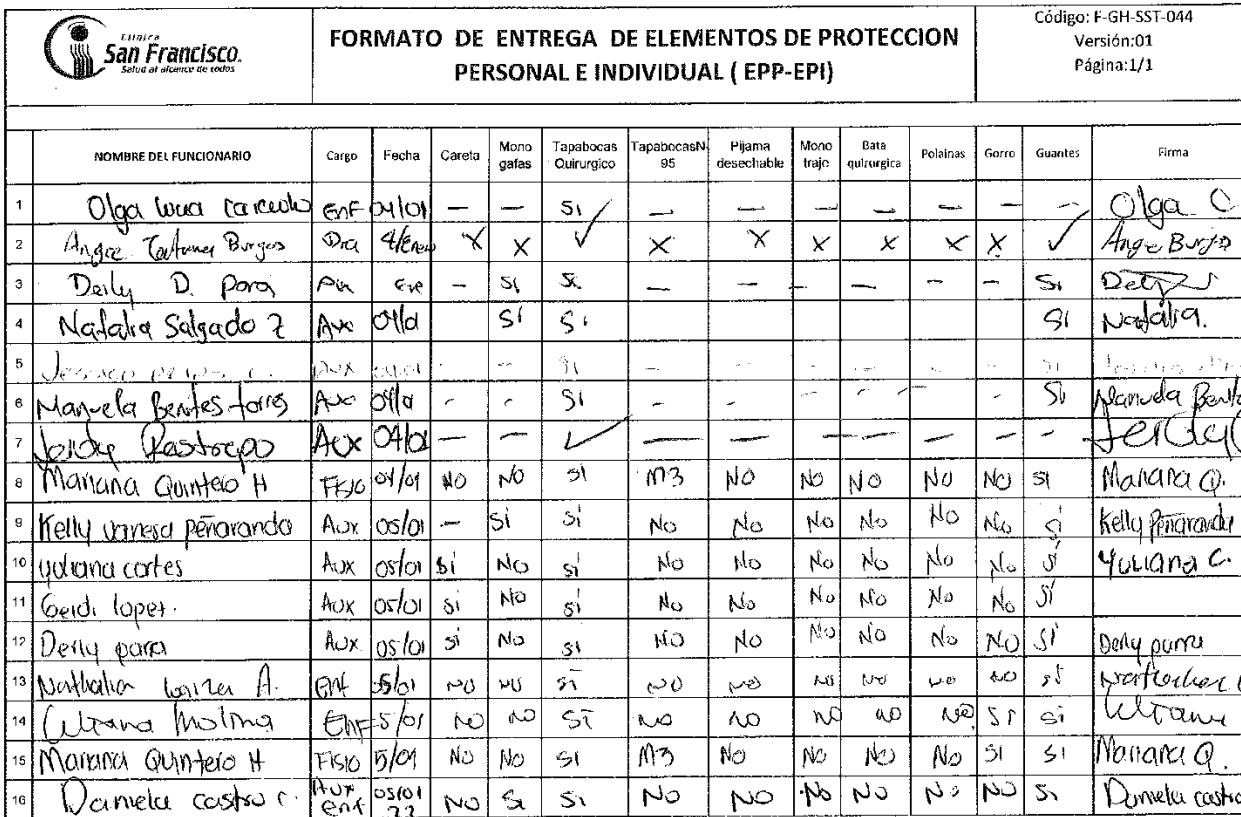 Clínica
San Francisco.
Salud al alcance de todos
FORMATO DE ENTREGA DE ELEMENTOS DE PROTECCION
PERSONAL E INDIVIDUAL ( EPP-EPI)
Código: F-GH-SST-044
Versión:01
Página:1/1
NOMBRE DEL FUNCIONARIO Cargo Fecha Careta Mono gafas Tapabocas Quirurgico TapabocasN-95 Pijama desechable Mono traje Bata quirurgica Polainas Gorro Guantes Firma
1 Olga EnF 04/01 — — Si ✓ — — — — — — — Olga C
2 Burgos Dra 4/Enero X X ✓ X X X X X X ✓ Burgos
3 Deily D. Para Ene — Si Si — — — — — — Si
4 Natalia Salgado Z Aux 04/01 Si Si Si Natalia.
5 Aux 04/01 - -- Si — - - - - - Si
6 Manuela Benites torres Aux 04/01 - - Si - - - - - - Si Manuela
7 Restrepo Aux 04/01 — — ✓ — — — — — — -
8 Mariana Quintero H Fisio 04/01 NO NO SI M3 NO NO NO NO NO SI Mariana Q.
9 Kelly vanesa peñaranda Aux 05/01 — Si Si No No No No No No Si Kelly Peñaranda
10 yuliana cortes Aux 05/01 Si No si No No No No No No Si Yuliana C.
11 Geidi lopez. Aux 05/01 Si No si No No No No No No Si
12 Derly parra Aux 05/01 Si No si NO NO NO NO No NO SI Derly parra
13 Nathalia A. Enf 5/01 NO NO SI NO NO NO NO NO NO si
14 Molina Enf 5/01 NO NO SI NO NO NO NO NO SI si
15 Mariana Quintero H Fisio 5/01 No No SI M3 No No No No SI SI Mariana Q.
16 Daniela castro c. Aux enf 05/01 22 NO Si Si NO NO NO NO NO NO Si Daniela castro